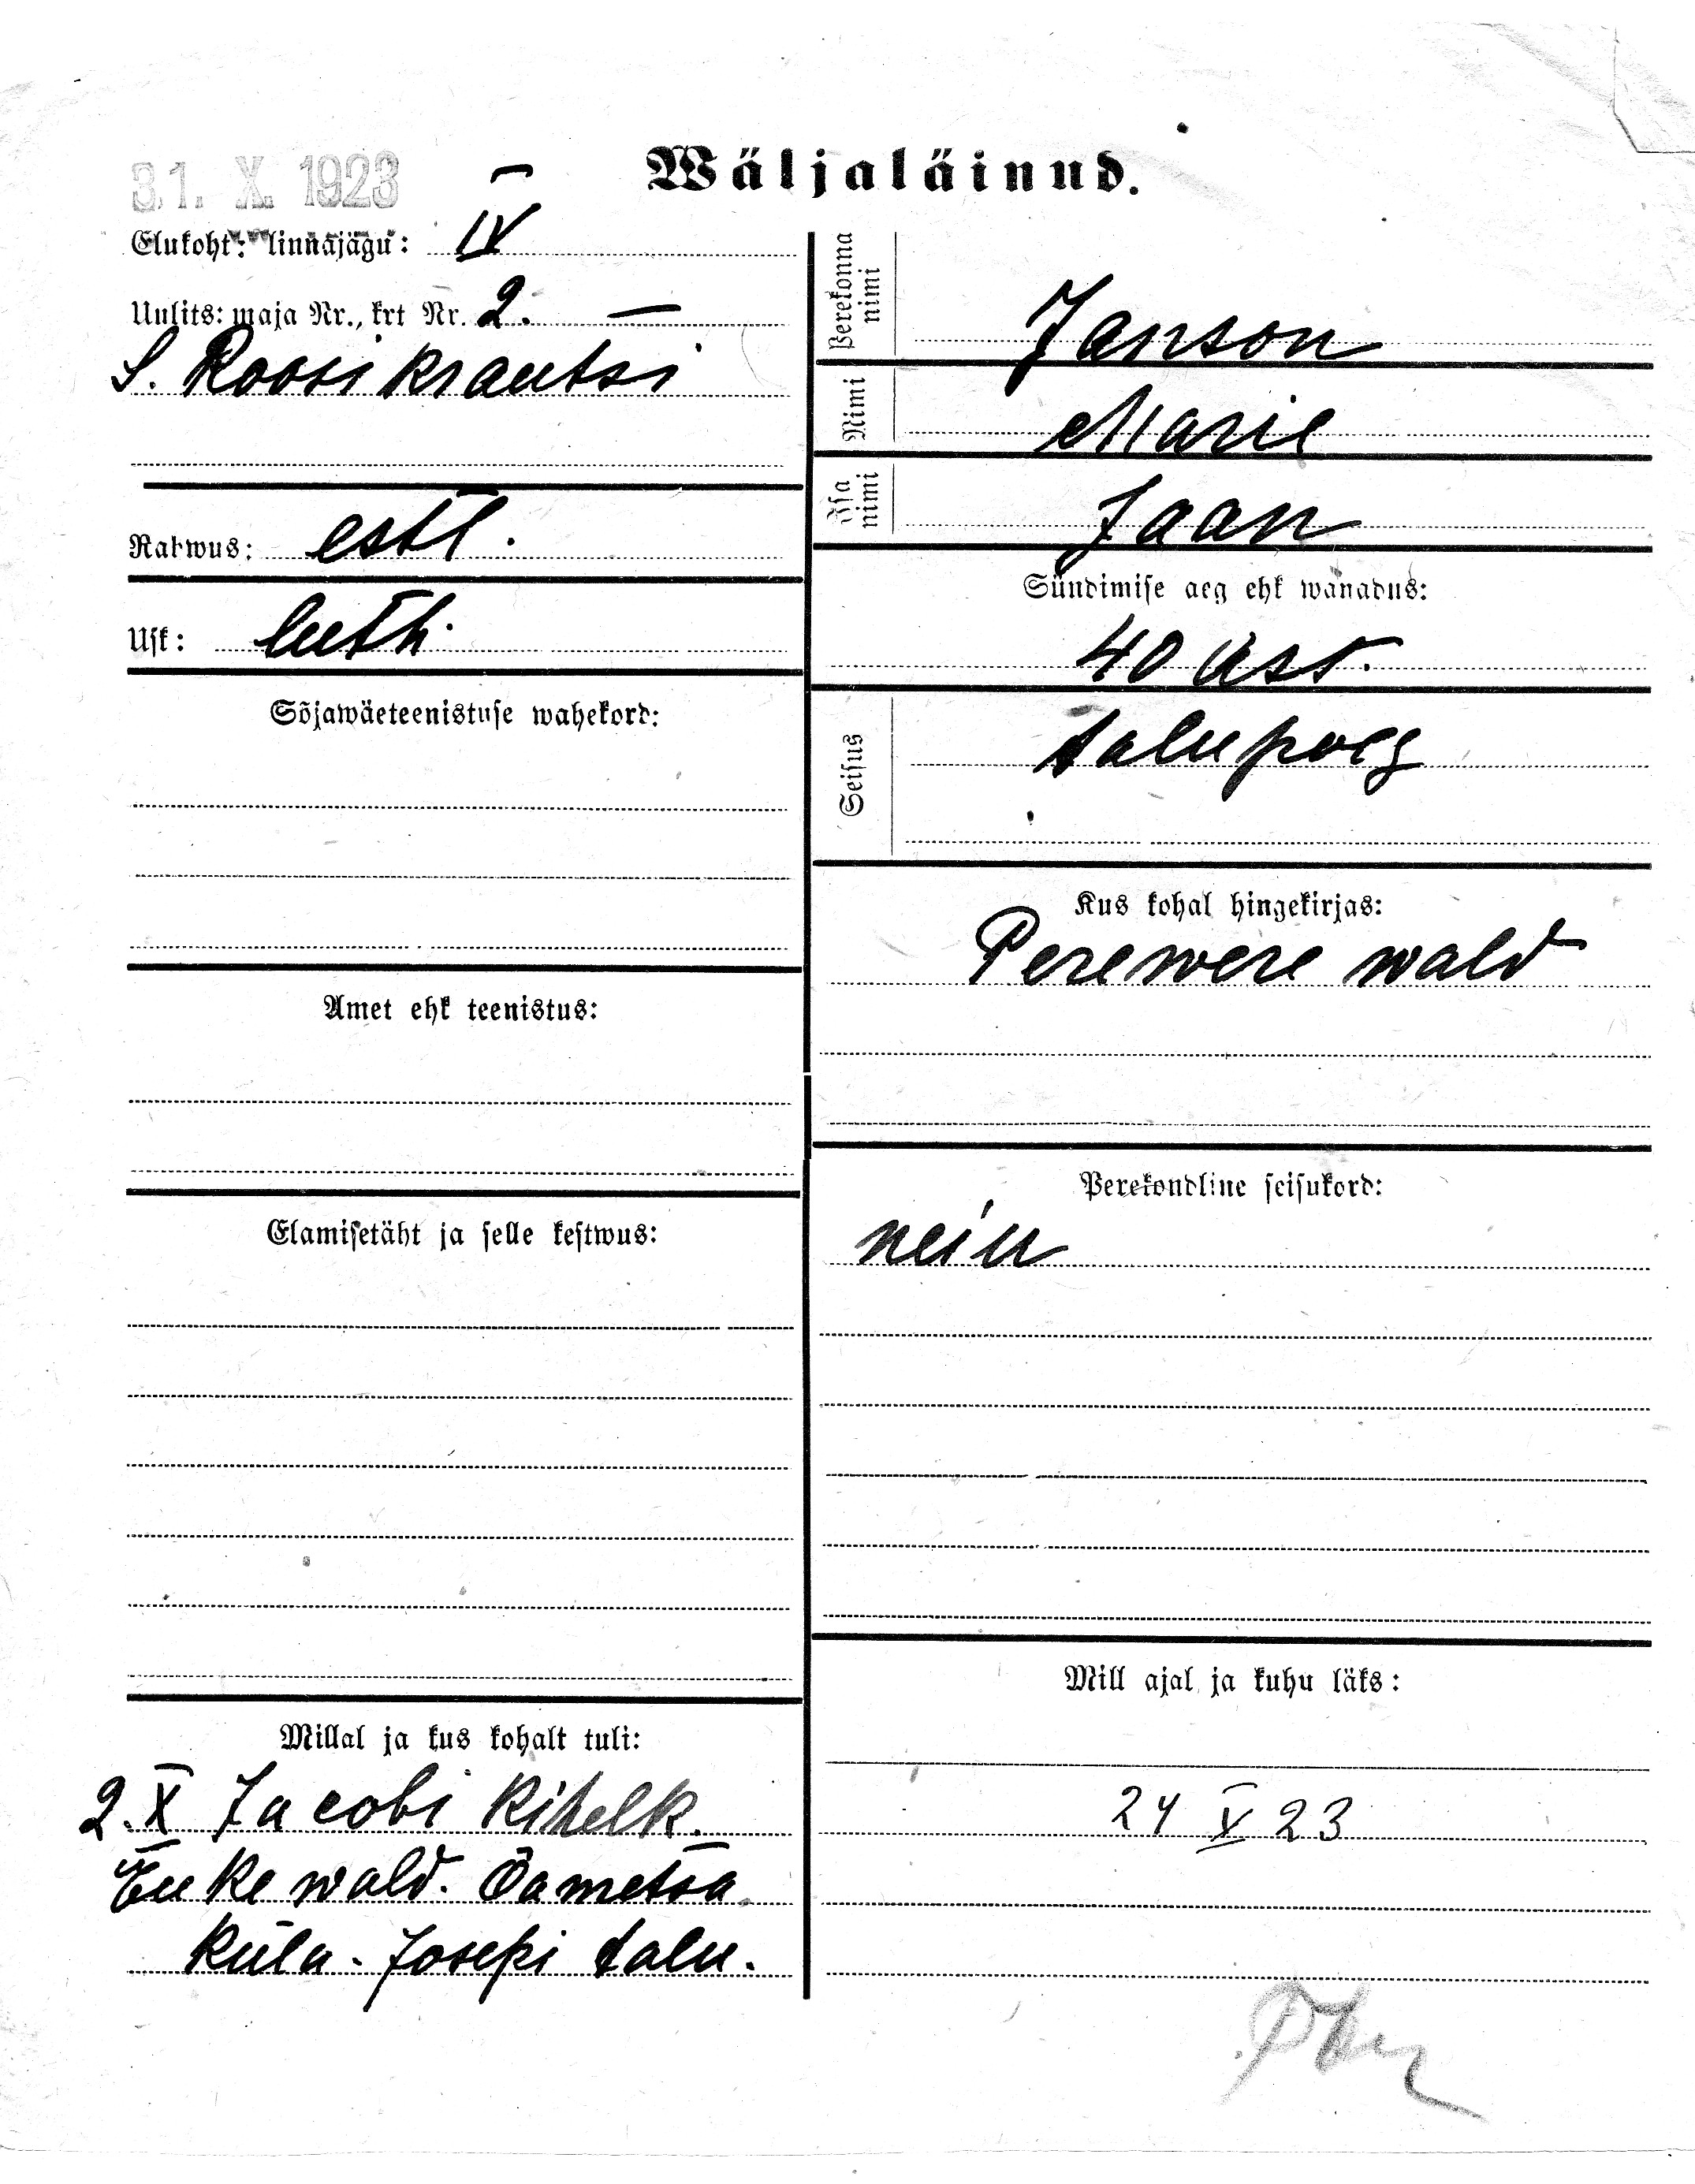 31. X. 1923
Wäljaläinud.
Elukoht: linnajagu: IV
Uulits: maja Nr., krt Nr. 2. —
S. Roosikrantsi
Rahwus: estl.
Usk: luth.
Sõjawäeteenistuse wahekord:
Amet ehk teenistus:
Elamisetäht ja selle kestwus:
Millal ja kus kohalt tuli:
2. X Jacobi Kihelk.
wald. Õametsa
Küla. Josepi talu.
Perekonna nimi
Janson
Nimi
Marie
Isa nimi
Jaan
Sündimise aeg ehk wanadus:
40 aast.
Seisus
talupoeg
Kus kohal hingekirjas:
Perewere wald
Perekondline seisukord:
neiu
Mill ajal ja kuhu läks:
24 V 23